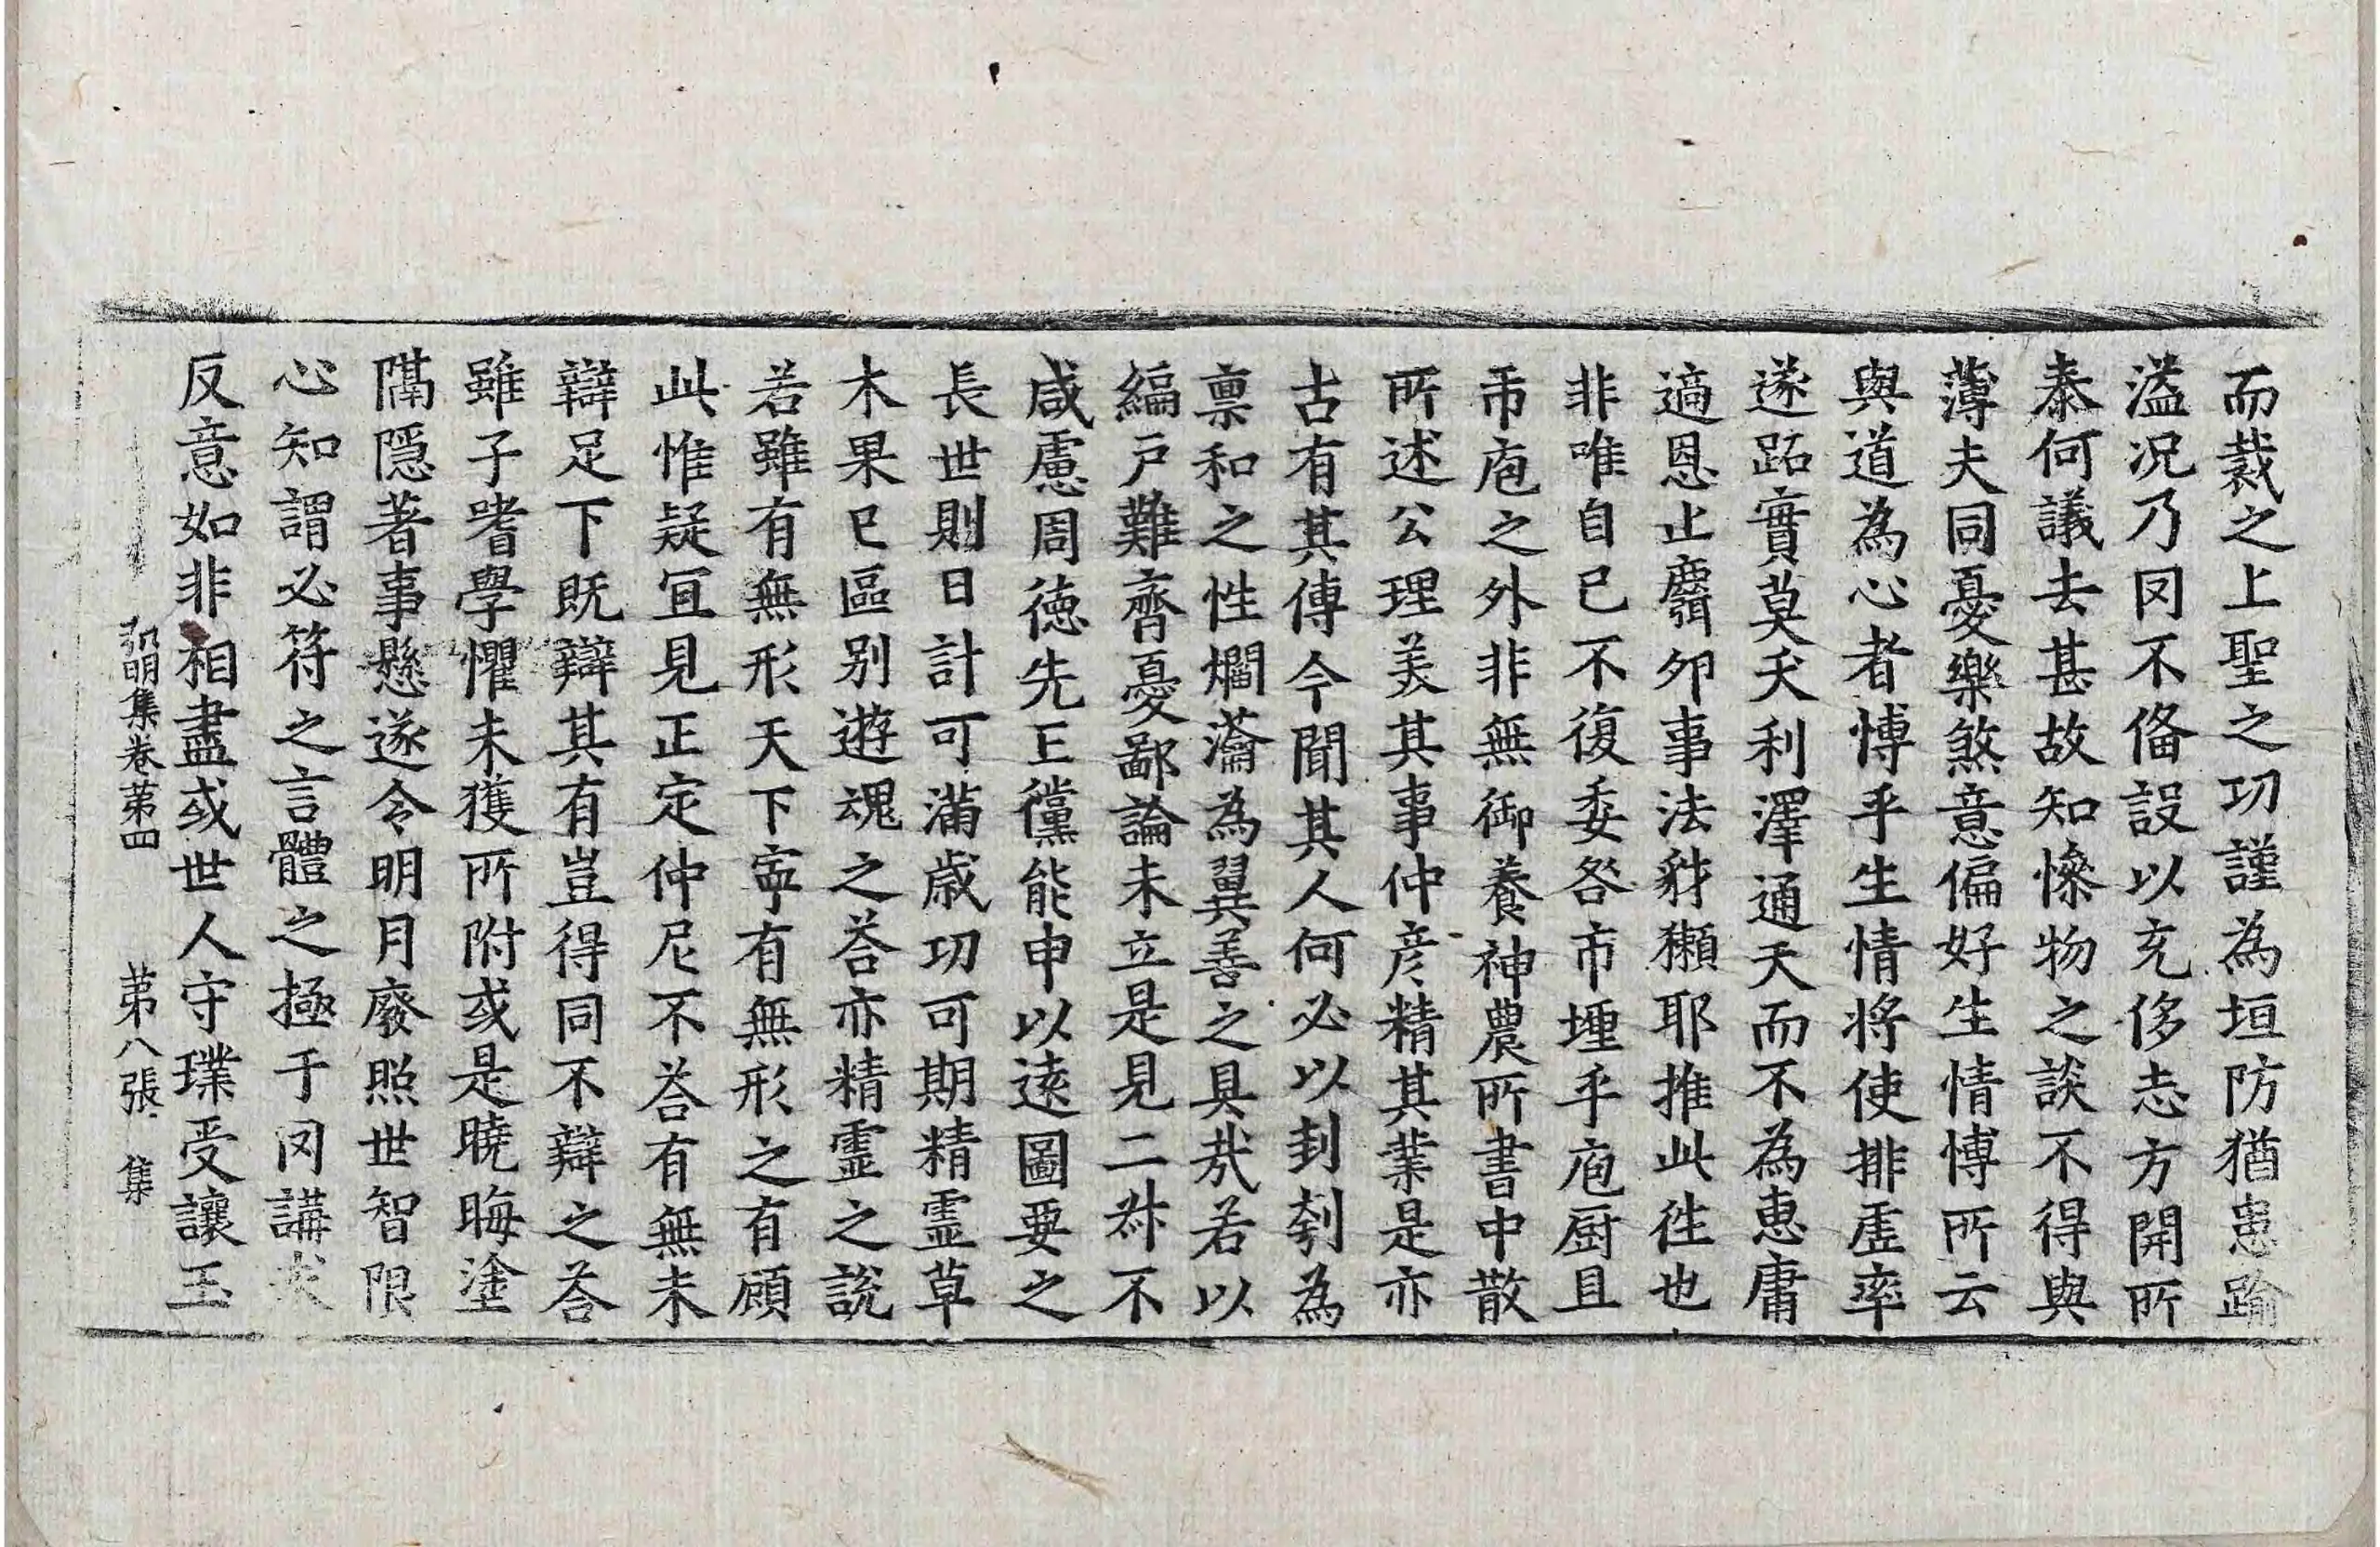 而裁之上聖之功謹為垣防猶患踰
溢况乃罔不俻設以充侈志方開所
泰何議去甚故知慘物之談不得與
薄夫同憂樂煞意偏好生情博所云
與道為心者博乎生情将使排虛率
遂跖實莫夭利澤通天而不為惠庸
適恩止麛卵事法豺獺耶推此往也
非唯自已不復委咎市壥乎庖厨且
市庖之外非無御養神農所書中散
所述公理美其事仲彦精其業是亦
古有其傳今聞其人何必以刲刳為
禀和之性爓瀹為翼善之具㢤若以
編户難齊憂鄙論未立是見二叔不
咸慮周德先王儻能申以遠圖要之
長世則日計可滿歳功可期精霊草
木果已區别遊魂之荅亦精霊之說
若雖有無形天下寜有無形之有顧
此惟疑冝見正定仲尼不荅有無未
辯足下既辯其有豈得同不辯之荅
雖子嗜學懼未獲所附或是曉晦塗
隔隱著事懸遂令明月廢照世智限
心知謂必符之言體之極于罔講求
反意如非相盡或世人守璞受讓玉
弘明集卷第四 第八張 集